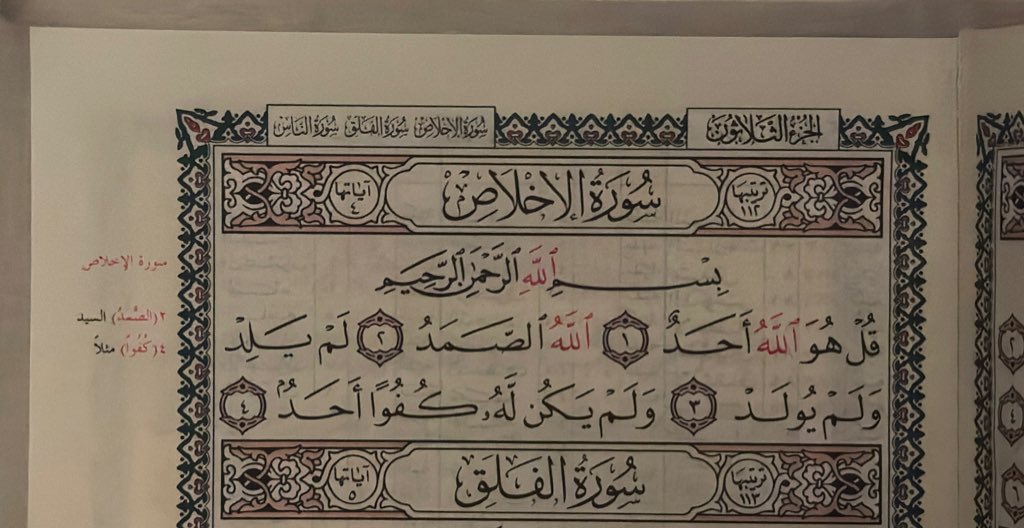 الجزء الثلاثون
سورة الإخلاص سورة الفلق سورة الناس
ترتيبها ١١٢
سُورَةُ الإِخْلَاصِ
آياتها ٤
بِسْمِ ٱللَّهِ ٱلرَّحْمَٰنِ ٱلرَّحِيمِ
قُلْ هُوَ ٱللَّهُ أَحَدٌ ١ ٱللَّهُ ٱلصَّمَدُ ٢ لَمْ يَلِدْ
وَلَمْ يُولَدْ ٣ وَلَمْ يَكُن لَّهُۥ كُفُوًا أَحَدٌۢ ٤
ترتيبها ١١٣
سُورَةُ الفَلَقِ
آياتها ٥
سورة الإخلاص
٢ (الصَّمَدُ) السيد
٤ (كُفُواً) مثلاً
٢
٤
٦